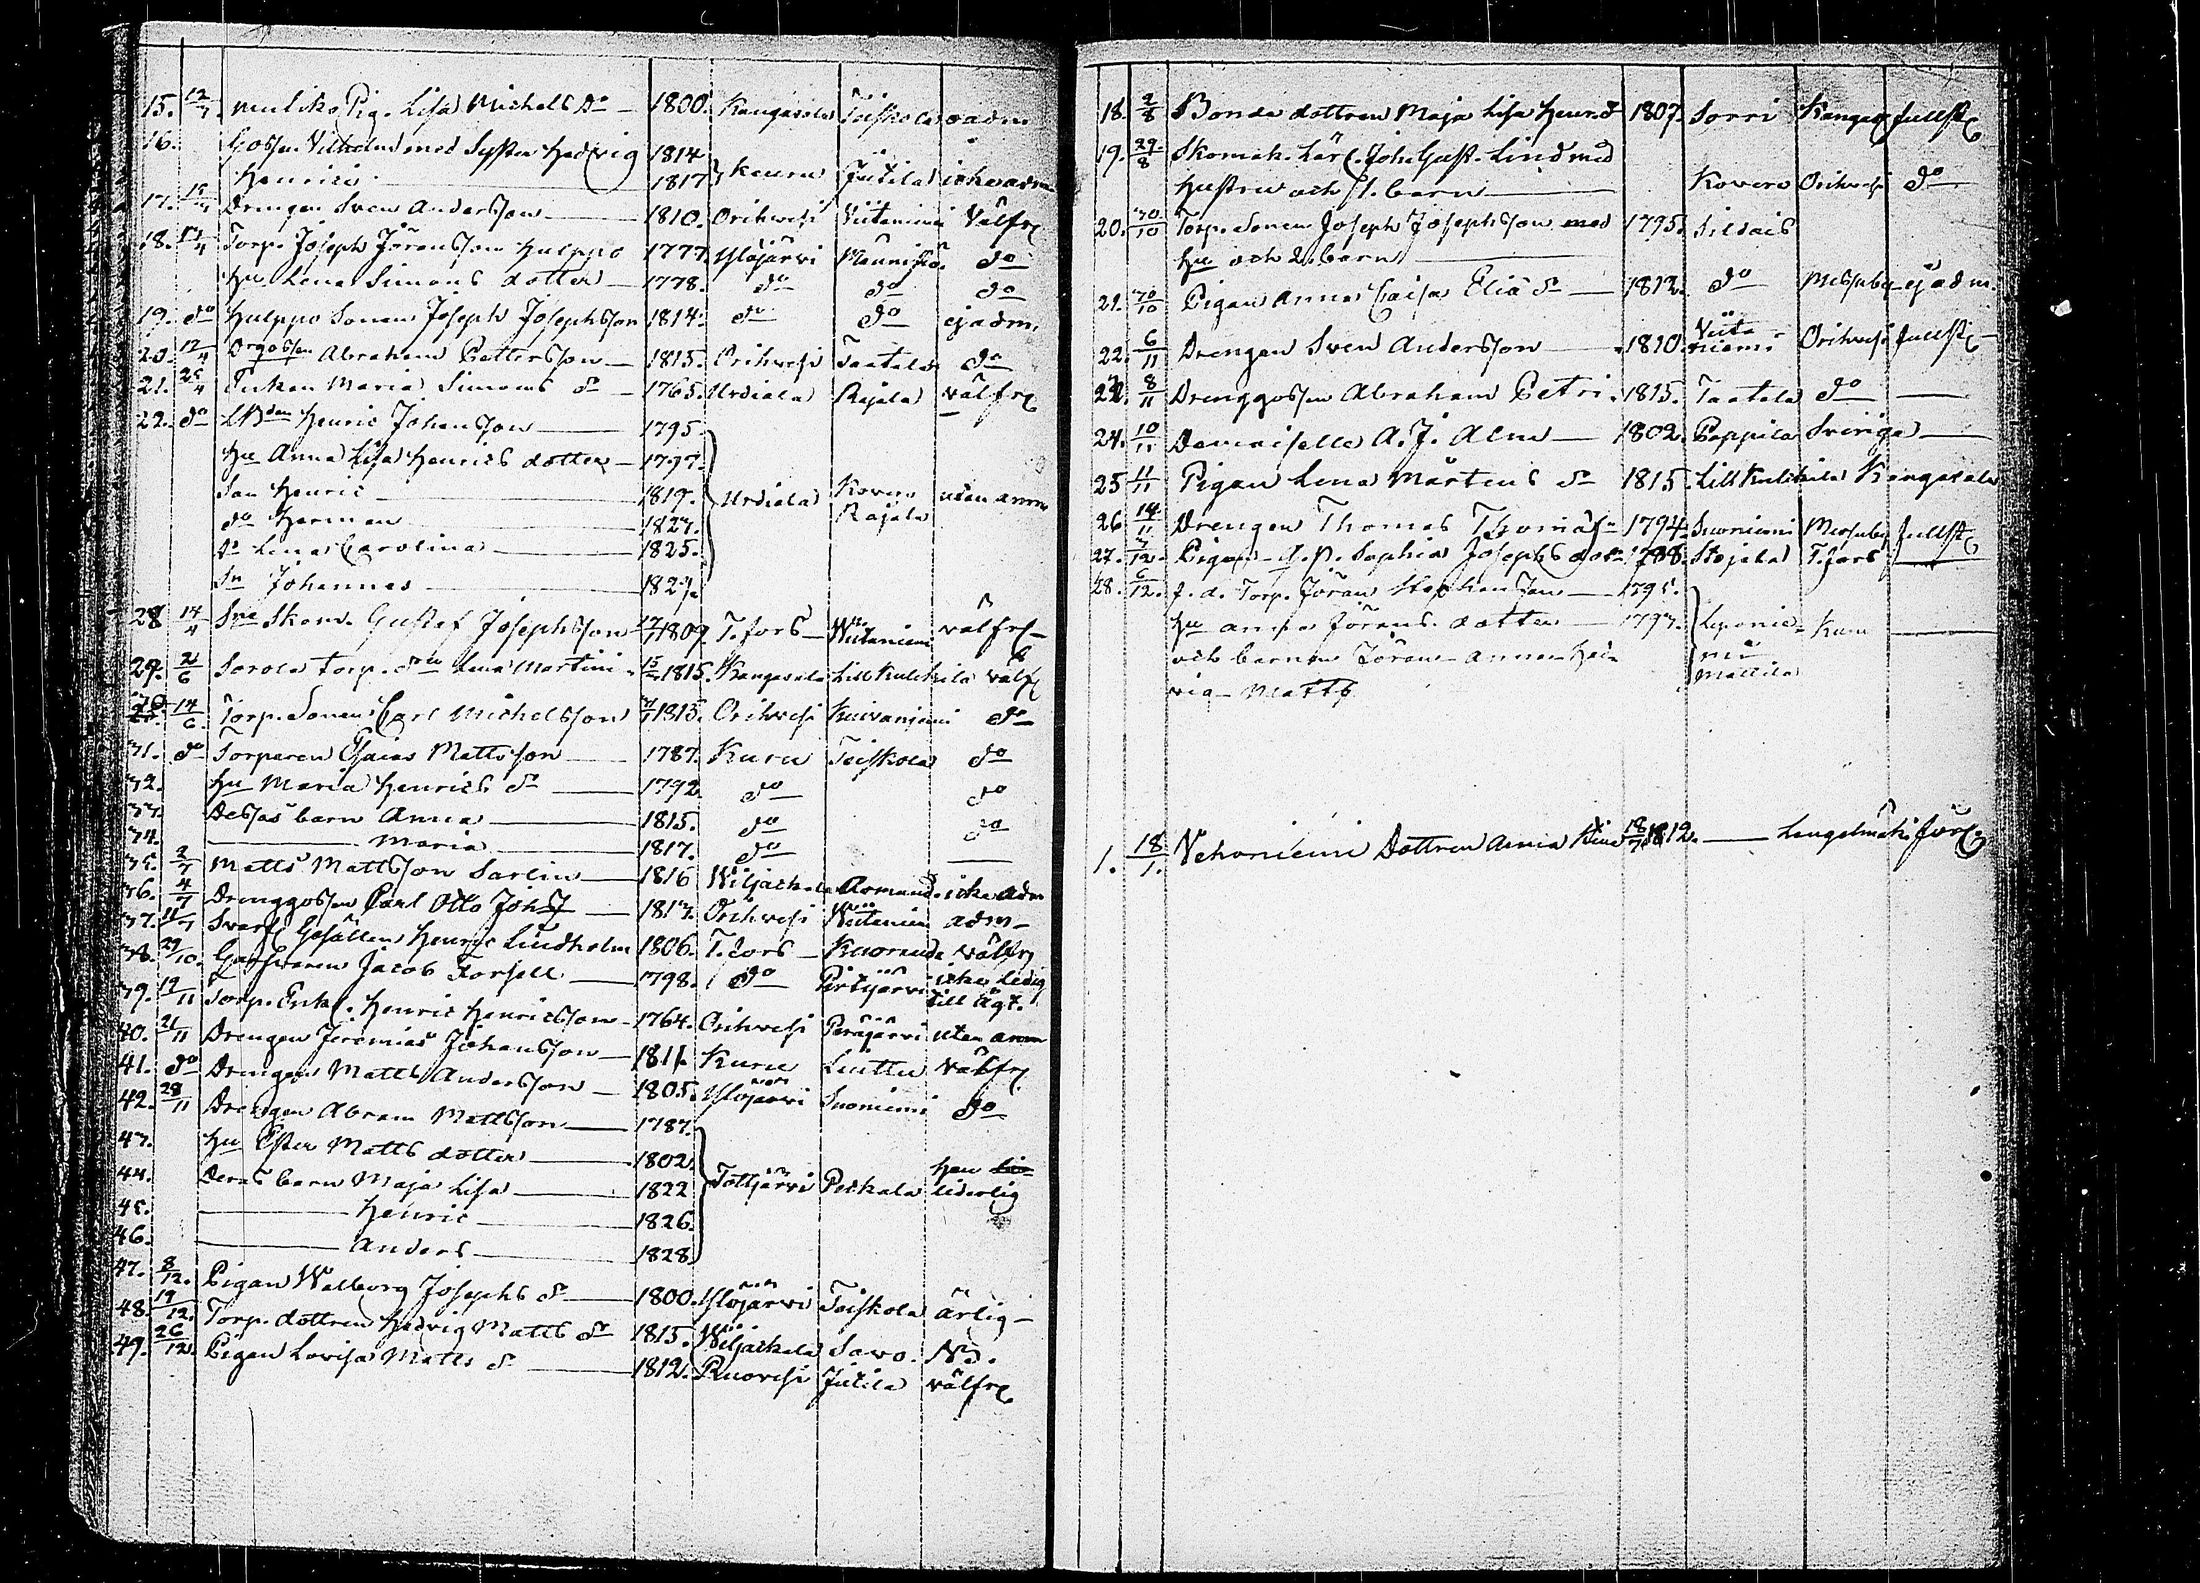 15. 12/3. muliko Pig. Lisa Michels do — 1800. Kangasala Teiskola oadm
16. Gossen Vilhelm med Syster Hedvig 1814
Henrici — 1817 } Keuru Jutila icke adm
17. Drengen Sven Andersson — 1810. Orihvesi Viitaniemi Välfr
18. Torp. Joseph Jöransson Hulppo 1777. Ylöjärvi do
Hu Lena Simons dotter — 1778. do do do
19. do Hulppo Sonen Joseph Josephsson 1814. do do ej adm.
20. 12/4 Drgossen Abraham Pettersson — 1815. Orihvesi Taatala do
21. 25/4 Maria Simons dr — 1765. Urdiala Rajala välfr
22. do Henric Johansson — 1795
Hu Anna Lisa Henrics dotter — 1797.
Son Henric — 1819. } Urdiala Kovero Rajala utan anm
do Herman — 1823.
Dr Lena Carolina — 1825.
Sn Johannes — 1827.
28 14/4 Sne Skom. Gustaf Josephsson 1809 T.fors — Wiitaniemi välfr —
29. 2/6 Sorola Torp. dren Lena Martini 1815. Kangasala Lill Kulckila välf
30. 14/6 Torp. Sonen Carl Michelsson 1815. Orihvesi Kuivaniemi do
31. do Torparen Esaias Mattsson — 1787. Kuru Teiskola do
32. Hu Maria Henrics dr — 1792 do do
33. Dessas barn Anna — 1815. do do
34. — Maria — 1817. do —
35. 2/7 Matts Mattsson Sarlin — 1816 Wiljackala icke adm
36. 4/7 Drenggossen Carl Otto Johs — 1813. Orihvesi Wiitaniem adm —
37. 11/7 Svarf Gesällen Henric Lindholm 1806. T.fors — välfr
38. 29/10. Garfvaren Jacob Forsell — 1798. do icke ledig till ägt.
39. 12/11 Torp. Enkl. Henric Henricsson — 1764. Orihvesi Peräjärvi utan anm
40. 21/11 Drengen Jeremias Johansson — 1811. Kuru Liuttu Välfr
41. do Drengen Matts Andersson — 1805. Ylöjärvi Suoniemi do
42. 28/11 Drengen Abram Mattsson — 1787.
43. Hu Ester Matts dotter — 1802
44. Deras barn Maja Lisa — 1822 } Tottjärvi Peckala han liderlig
45. — Henric — 1826.
46. — Anders — 1828
47. 8/12. Pigan Walborg Josephs dr — 1800. Ylöjärvi Teiskola ärlig —
48. 19/12. Torp. dottren Hedvig Matts dr 1815. Wiljackala Savo.
49. 26/12 Pigan Lovisa Matts d. — 1812. Ruovesi Jutila välfr
18. 2/8 Bonde dottren Maja Lisa Henr.d 1807. Sorri Kangas fullst
19. 29/8 Skomak. Lärl. Joh. Gust. Lind med
Hustru och 1. barn — Kovero Orihvesi do
20. 30/10 Torp. Sonen Joseph Josephsson med 1795. Sildais
Hu och 2. barn —
21. 30/10 Pigan Anna Caisa Elia dr — 1812. do Messuby ej adm.
22. 6/11 Drengen Sven Andersson — 1810. Viitaniemi Orihvesi fullst
23. 8/11 Drenggossen Abraham Petri. 1815. Taatala do —
24. 10/11 Demoiselle A. J. Alm — 1802. Pappila Sverige —
25 11/11 Pigan Lena Mårtens dr 1815. Lill Kulckila Kangasala
26 14/11 Drengen Thomas Thomass 1794. Suoniemi Messuby fullst
27. 3/12. Pigan Sophia Josephs dotr 1788. Stojala T.fors —
28. 6/12. f. d. Torp. Jöran Stephansson — 1795.
Hu Anna Jörans dotter — 1793. Kuru —
och barnen Jöran — Anna — Hed-
vig — Matts Mattila
1. 18/1. Vehoniemi Dottren Anna 1812. — Lengelmäki förl.